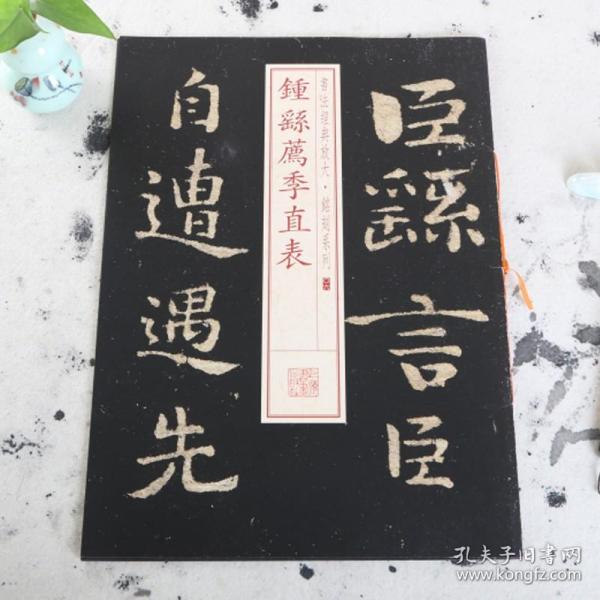 臣繇言臣
書法經典放大·銘刻系列
鍾繇薦季直表
自遭遇先
孔夫子旧书网
www.kongfz.com